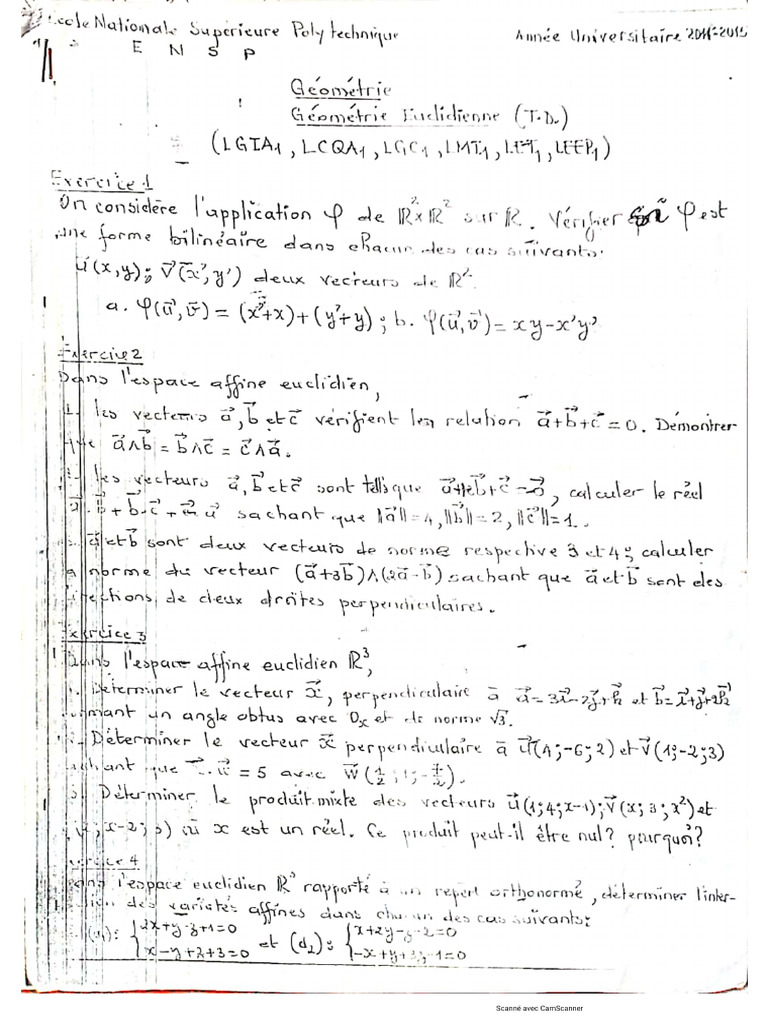 Ecole Nationale Supérieure Polytechnique Année Universitaire
E N S P
Géométrie
Géométrie Euclidienne (T.D.)
(LGIA1, LCQA1, LGC1, LMT1, LET1, LEEP1)
Exercice 1
On considère l'application φ de ℝ²×ℝ² sur ℝ. Vérifier si φ est
une forme bilinéaire dans chacun des cas suivants.
u⃗(x,y); v⃗(x',y') deux vecteurs de ℝ².
a. φ(u⃗,v⃗) = (x'+x)+(y'+y); b. φ(u⃗,v⃗) = xy-x'y'
Exercice 2
Dans l'espace affine euclidien,
1. les vecteurs a⃗, b⃗ et c⃗ vérifient la relation a⃗+b⃗+c⃗=0. Démontrer
que a⃗∧b⃗ = b⃗∧c⃗ = c⃗∧a⃗.
les vecteurs a⃗, b⃗ et c⃗ sont tels que, calculer le réel
sachant que ||a⃗||=4, ||b⃗||=2, ||c⃗||=1.
a⃗ et b⃗ sont deux vecteurs de norme respective 3 et 4; calculer
norme du vecteur (a⃗+3b⃗)∧(2a⃗-b⃗) sachant que a⃗ et b⃗ sont des
de deux droites perpendiculaires.
Exercice 3
Dans l'espace affine euclidien ℝ³,
1. Déterminer le vecteur x⃗, perpendiculaire à a⃗=3i⃗-2j⃗+k⃗ et b⃗=i⃗+j⃗+2k⃗
un angle obtus avec Ox et de norme √3.
2. Déterminer le vecteur x⃗ perpendiculaire à u⃗(4;-6;2) et v⃗(1;-2;3)
sachant que w⃗ = 5 avec w⃗
3. Déterminer le produit mixte des vecteurs u⃗(1;4;x-1); v⃗(x;3;x²) et
x-2; où x est un réel. Ce produit peut-il être nul? pourquoi?
Exercice 4
Dans l'espace euclidien rapporté à un repère orthonormé, déterminer l'inter-
des variétés affines dans chacun des cas suivants:
{2x+y-z+1=0 et (d2): {x+2y-z-2=0
{x-y+z+3=0 {-x+y+3z-1=0
Scanné avec CamScanner